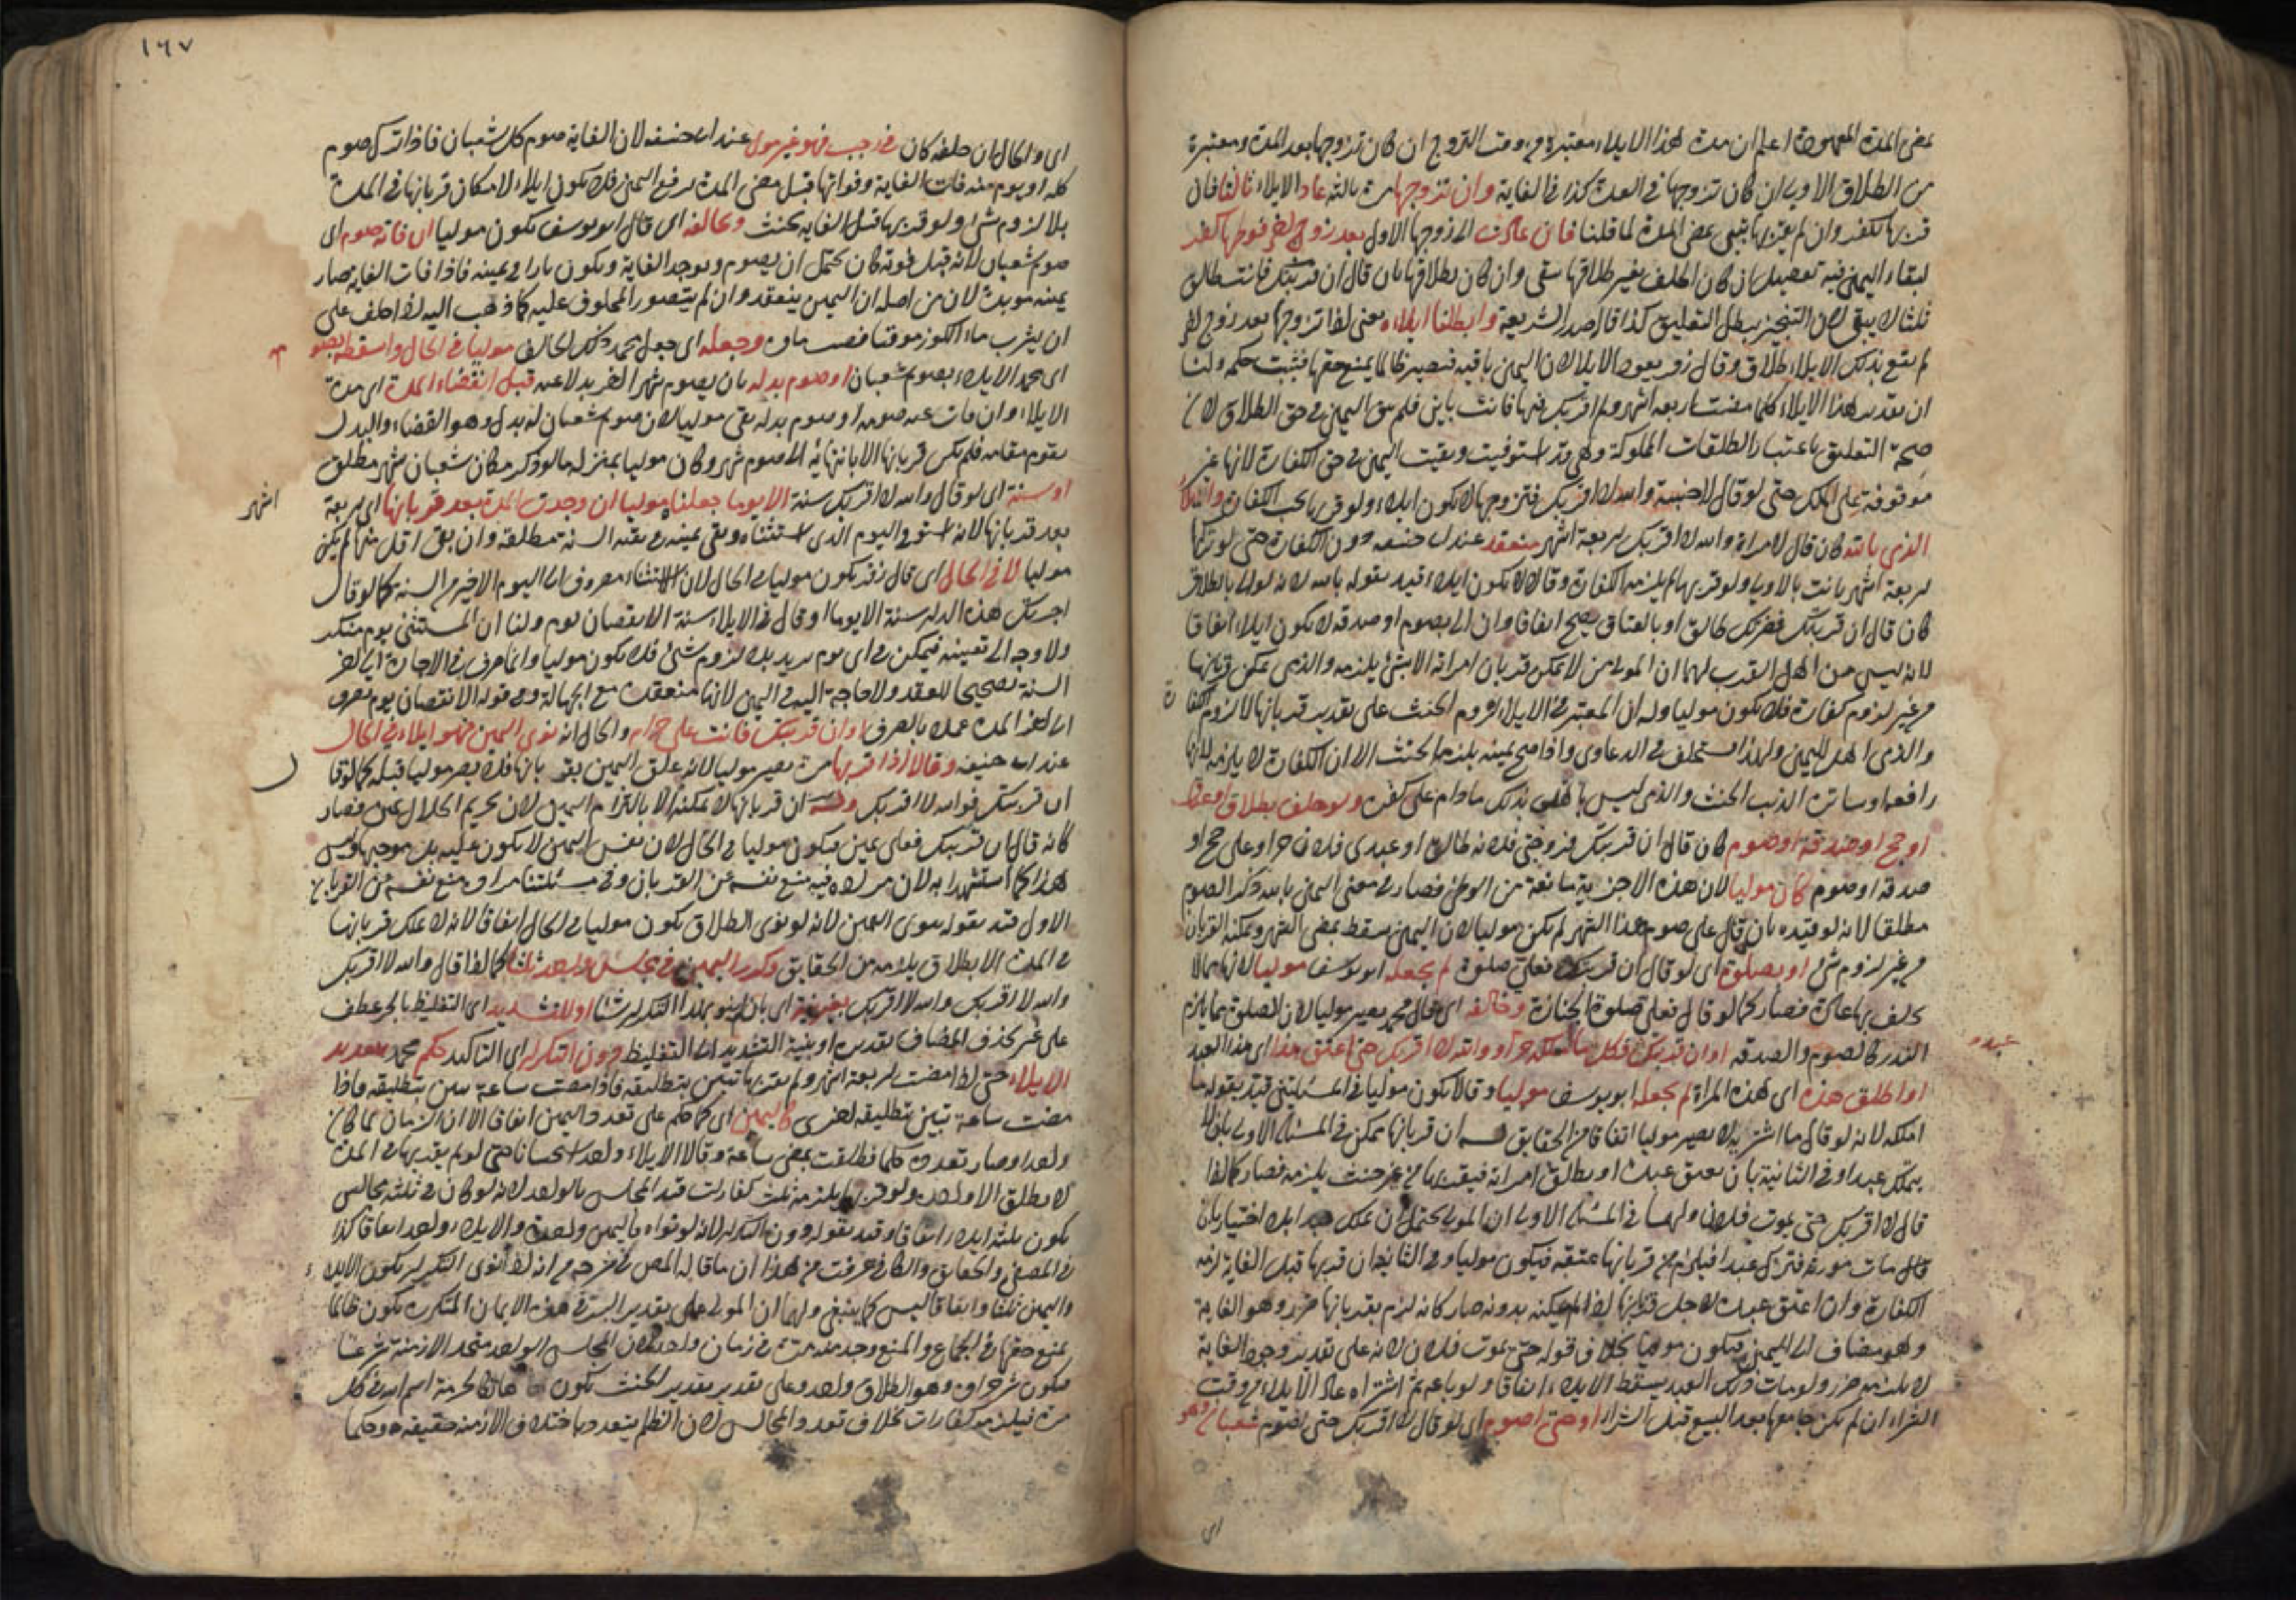 بمضى المدة المعهودة اعلم ان مدة هذا الايلاء معتبرة من وقت التزوج ان كان تزوجها بعد المدة ومعتبرة
من الطلاق الاول ان كان تزوجها فى العدة كذا فى الغاية وان تزوجها مرة ثالثة عاد الايلاء ثالثا فان
قربها كفر وان لم يقربها تبين بمضى المدة لما قلنا فان عادت الى زوجها الاول بعد زوج اخر فوطئها كفر
لبقاء اليمين فيه تفصيل ان كان الحلف بغير طلاقها يبقى وان كان بطلاقها بان قال ان قربتك فانت طالق
ثلثا لا يبقى لان التنجيز يبطل التعليق كذا قال صدر الشريعة وابطلنا ايلاءه يعنى اذا تزوجها بعد زوج اخر
لم يقع بذلك الايلاء طلاق وقال زفر يعود الايلاء لان اليمين باقية فيصير ظالما بمنع حقها فيثبت حكمه ولنا
ان تقدير هذا الايلاء كلما مضت اربعة اشهر ولم اقربك فيها فانت باين فلم يبق اليمين فى حق الطلاق لان
صحة التعليق باعتبار الطلقات المملوكة وهى قد استوفيت وبقيت اليمين فى حق الكفارة لانها غير
موقوفة على الملك حتى لو قال لاجنبية والله لا اقربك فتزوجها لا يكون ايلاء ولو قربها يجب الكفارة وايلاء
الذمى بالله كان قال لامراته والله لا اقربك اربعة اشهر منعقد عند ابى حنيفة دون الكفارة حتى لو تركها
اربعة اشهر بانت بالايلاء ولو قربها لم يلزمه الكفارة وقالا لا يكون ايلاء قيد بقوله بالله لانه لو الى بالطلاق
كان قال ان قربتك فضرتك طالق او بالعتاق يصح اتفاقا وان الى بصوم او صدقة لا يكون ايلاء اتفاقا
لانه ليس من اهل القرب لهما ان المولى من لا يمكن قربان امراته الا بشئ يلزمه والذمى يمكن قربانها
من غير لزوم كفارة فلا يكون موليا وله ان المعتبر فى الايلاء لزوم الحنث على تقدير قربانها لا لزوم الكفارة
والذمى اهل لليمين ولهذا يستحلف فى الدعاوى واذا صح يمينه يلزمه الحنث الا ان الكفارة لا يلزمه لانها
رافعة وساترة الذنب الحنث والذمى ليس باهل لذلك ما دام على كفره ولو حلف بطلاق او عتاق
او حج او صدقة او صوم كان قال ان قربتك فزوجتى فلانه طالق او عبدى فلان حر او على حج او
صدقة او صوم كان موليا لان هذه الاجزية مانعة من الوطئ فصار فى معنى اليمين بالله ذكر الصوم
مطلقا لانه لو قيده بان قال على صوم هذا الشهر لم يكن موليا لان اليمين يسقط بمضى الشهر ويمكنه القربان
من غير لزوم شئ او بصلوة اى لو قال ان قربتك فعلى صلوة لم يجعله ابو يوسف موليا لانها مما لا
يحلف بها عادة فصار كما لو قال فعلى صلوة الجنازة وخالفه اى قال محمد يصير موليا لان الصلوة مما يلزم
النذر كالصوم والصدقة او ان قربتك فكل ما املكه حر او والله لا اقربك حتى اعتق هذا اى هذا العبد
عبده
او اطلق هذه اى هذه المراة لم يجعله ابو يوسف موليا وقالا يكون موليا فى المسئلتين قيد بقوله ما
املكه لانه لو قال ما اشتريه لا يصير موليا اتفاقا من الحقايق له ان قربانها ممكن فى المسئلة الاولى بان لا
يتملك عبدا وفى الثانية بان يعتق عبده او يطلق امراته فيقربها من غير حنث يلزمه فصار كما اذا
قال لا اقربك حتى يموت فلان ولهما فى المسئلة الاولى ان المولى يحتمل ان يملك عبدا بلا اختيار بان
مات مورثه فترك عبدا فيلزم من قربانها عتقه فيكون موليا وفى الثانية ان قربها قبل الغاية لزمه
الكفارة وان اعتق عبده لاجل قربانها اذا لم يمكنه بدونه صار كانه لزم بقربانها ضرر وهو الغاية
وهو مضاف الى اليمين فيكون موليا بخلاف قوله حتى يموت فلان لانه على تقدير وجود الغاية
لا يلزمه ضرر ولو مات ذلك العبد يسقط الايلاء اتفاقا ولو باعه ثم اشتراه عاد الايلاء من وقت
الشراء ان لم يكن جامعها بعد البيع قبل الشراء او حتى اصوم اى لو قال لا اقربك حتى اصوم شعبان وهو
اى
١٦٧
اى والحال ان حلفه كان فى رجب فهو غير مول عند ابى حنيفه لان الغاية صوم كل شعبان فاذا ترك صوم
كله او يوم منه فات الغاية وفواتها قبل مضى المدة يرفع اليمين فلا يكون ايلاء لامكان قربانها فى المدة
بلا لزوم شئ ولو قربها قبل الغاية يحنث وخالفه اى قال ابو يوسف يكون موليا ان فاته صوم اى
صوم شعبان لانه قبل فوته كان يحتمل ان يصوم ويوجد الغاية ويكون بارا فى يمينه فاذا فات الغاية صار
يمينه موبدة لان من اصله ان اليمين ينعقد وان لم يتصور المحلوف عليه كما ذهب اليه اذا حلف على
ان يشرب ماء الكوز موقتا فصب ماؤه وجعله اى جعل محمد ذلك الحالف موليا فى الحال واسقطه بصومه
اى محمد الايلاء بصوم شعبان او صوم بدله بان يصوم شهرا اخر بدلا عنه قبل انقضاء المدة اى مدة
الايلاء وان فات عنه صومه او صوم بدله بقى موليا لان صوم شعبان له بدل وهو القضاء والبدل
يقوم مقامه فلم يكن قربانها الا بانتهائه الى صوم شهر وكان موليا بمنزلة ما لو ذكر مكان شعبان شهر مطلق
او سنة اى لو قال والله لا اقربك سنة الا يوما جعلناه موليا ان وجدت المدة بعد قربانها اى اربعة
اشهر
بعد قربانها لانه استوفى اليوم الذى استثناه وبقى يمينه فى بقية السنة مطلقة وان بقى اقل منها لم يكن
موليا لا فى الحال اى قال زفر يكون موليا فى الحال لان الاستثناء مصروف الى اليوم الاخير من السنة كما لو قال
اجرتك هذه الدار سنة الا يوما او قال فى الايلاء سنة الا نقصان يوم ولنا ان المستثنى يوم منكر
ولا وجه الى تعيينه فيمكن فى اى يوم يريد بلا لزوم شئ فلا يكون موليا وانما صرف فى الاجارة الى اخر
السنة تصحيحا للعقد ولا حاجة اليه فى اليمين لانها منعقدة مع الجهالة وفى قوله الا نقصان يوم يصرف
الى اخر المدة عملا بالعرف او ان قربتك فانت على حرام والحال انه نوى اليمين فهو ايلاء فى الحال
عند ابى حنيفه وقالا اذا قربها مرة يصير موليا لانه علق اليمين بقربانها فلا يصير موليا قبله كما لو قال
ان قربتك فوالله لا اقربك وله ان قربانها لا يمكنه الا بالتزام اليمين لان تحريم الحلال يمين فصار
كانه قال ان قربتك فعلى يمين فيكون موليا فى الحال لان نفس اليمين لا يكون عليه بل موجبها وليس
هذا كما استشهدا به لان مراده فيه منع نفسه عن القربان وفى مسئلتنا مراده منع نفسه من القربان
الاول قيد بقوله نوى اليمين لانه لو نوى الطلاق يكون موليا فى الحال اتفاقا لانه لا يملك قربانها
فى المدة الا بطلاق يلزمه من الحقايق وكرر اليمين فى مجلس واحد ثلثا كما اذا قال والله لا اقربك
والله لا اقربك والله لا اقربك بغير نية اى بان لم ينو بهذا التكرار شيئا او للتشديد اى التغليظ بالجر عطف
على غير بحذف المضاف تقديره او بنية التشديد اى التغليظ دون التكرار اى التاكيد حكم محمد بتعديد
الايلاء حتى اذا مضت اربعة اشهر ولم يقربها تبين بتطليقة فاذا مضت ساعة تبين بتطليقة فاذا
مضت ساعة تبين بتطليقة اخرى كاليمين اى كما حكم على تعدد اليمين اتفاقا الا ان الزمان لما كان
واحدا وصار تعدده كلما فطلقت بمضى ساعة وقالا الايلاء واحد استحسانا حتى لو لم يقربها فى المدة
لا يطلق الا واحدة ولو قربها يلزمه ثلث كفارات قيد المجلس بالواحد لانه لو كان فى ثلثة مجالس
يكون ثلثة ايلاء اتفاقا وقيد بقوله دون التكرار لانه لو نواه فاليمين واحدة والايلاء واحد اتفاقا كذا
فى المصفى والحقايق والكافى عرفت من هذا ان ما قاله المص فى شرحه من انه اذا نوى التكرار يكون الايلاء
واليمين ثلثا اتفاقا ليس كما ينبغى ولهما ان المولى على تقدير البر فى هذه الايمان المتكررة يكون ظالما
بمنع حقها فى الجماع والمنع وجد منه مرة فى زمان واحد لان المجلس الواحد متحد الازمنة شرعا
فيكون شرط وهو الطلاق واحد وعلى تقدير تقدير الحنث يكون هاتكا لحرمة اسم الله فى كل
مرة فيلزمه كفارات بخلاف تعدد المجالس لان الظلم يتعدد باختلاف الازمنة حقيقة وحكما